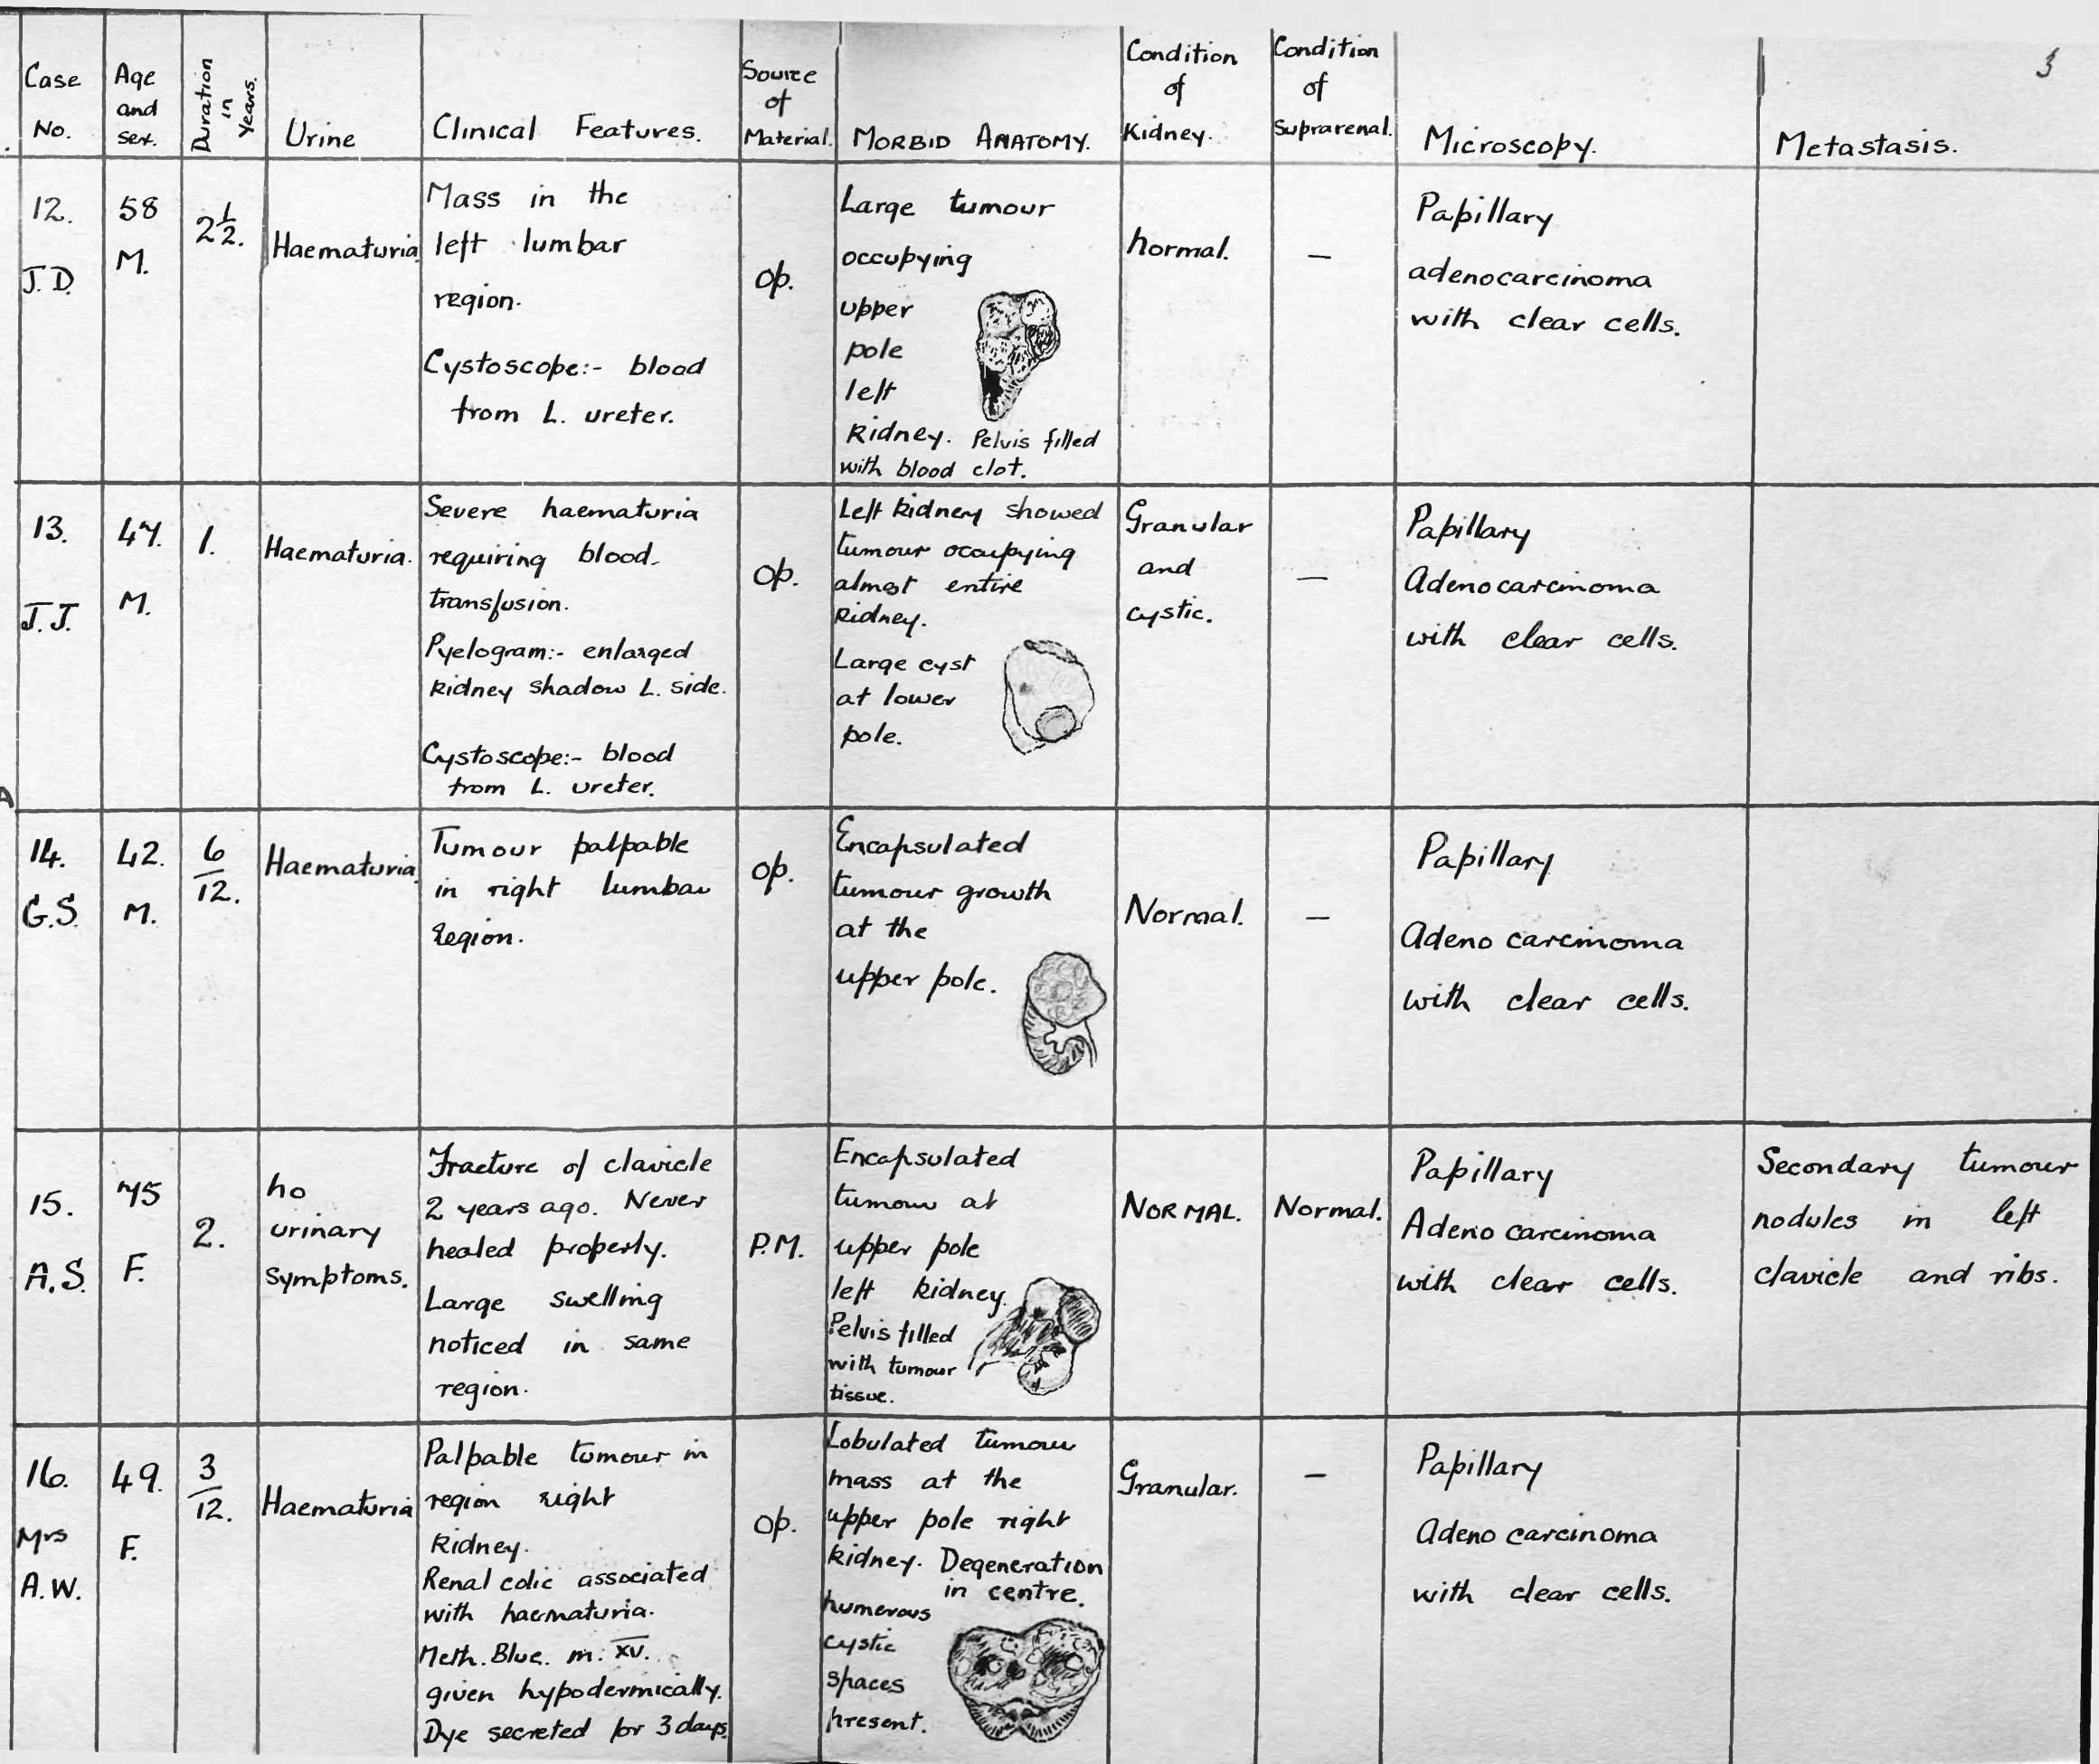 3
Case
No.
Age
and
sex.
Duration
in
Years.
Urine
Clinical Features.
Source
of
Material.
MORBID ANATOMY.
Condition
of
Kidney.
Condition
of
Suprarenal.
Microscopy.
Metastasis.
12.
J.D.
58
M.
2 1/2.
Haematuria
Mass in the
left lumbar
region.
Cystoscope:- blood
from L. ureter.
Op.
Large tumour
occupying
upper
pole
left
kidney. Pelvis filled
with blood clot.
Normal.
—
Papillary
adenocarcinoma
with clear cells.
13.
J.J.
47.
M.
1.
Haematuria.
Severe haematuria
requiring blood
transfusion.
Pyelogram:- enlarged
kidney shadow L. side.
Cystoscope:- blood
from L. ureter.
Op.
Left kidney showed
tumour occupying
almost entire
kidney.
Large cyst
at lower
pole.
Granular
and
cystic.
—
Papillary
Adenocarcinoma
with clear cells.
14.
G.S.
42.
M.
6/12.
Haematuria
Tumour palpable
in right lumbar
region.
Op.
Encapsulated
tumour growth
at the
upper pole.
Normal.
—
Papillary
Adeno carcinoma
with clear cells.
15.
A.S.
75
F.
2.
No
urinary
symptoms.
Fracture of clavicle
2 years ago. Never
healed properly.
Large swelling
noticed in same
region.
P.M.
Encapsulated
tumour at
upper pole
left kidney.
Pelvis filled
with tumour
tissue.
NORMAL.
Normal.
Papillary
Adeno carcinoma
with clear cells.
Secondary tumour
nodules in left
clavicle and ribs.
16.
Mrs
A.W.
49.
F.
3/12.
Haematuria
Palpable tumour in
region right
kidney.
Renal colic associated
with haematuria.
Meth. Blue. m. xv.
given hypodermically.
Dye secreted for 3 days.
Op.
Lobulated tumour
mass at the
upper pole right
kidney. Degeneration
in centre.
Numerous
cystic
spaces
present.
Granular.
—
Papillary
Adeno carcinoma
with clear cells.